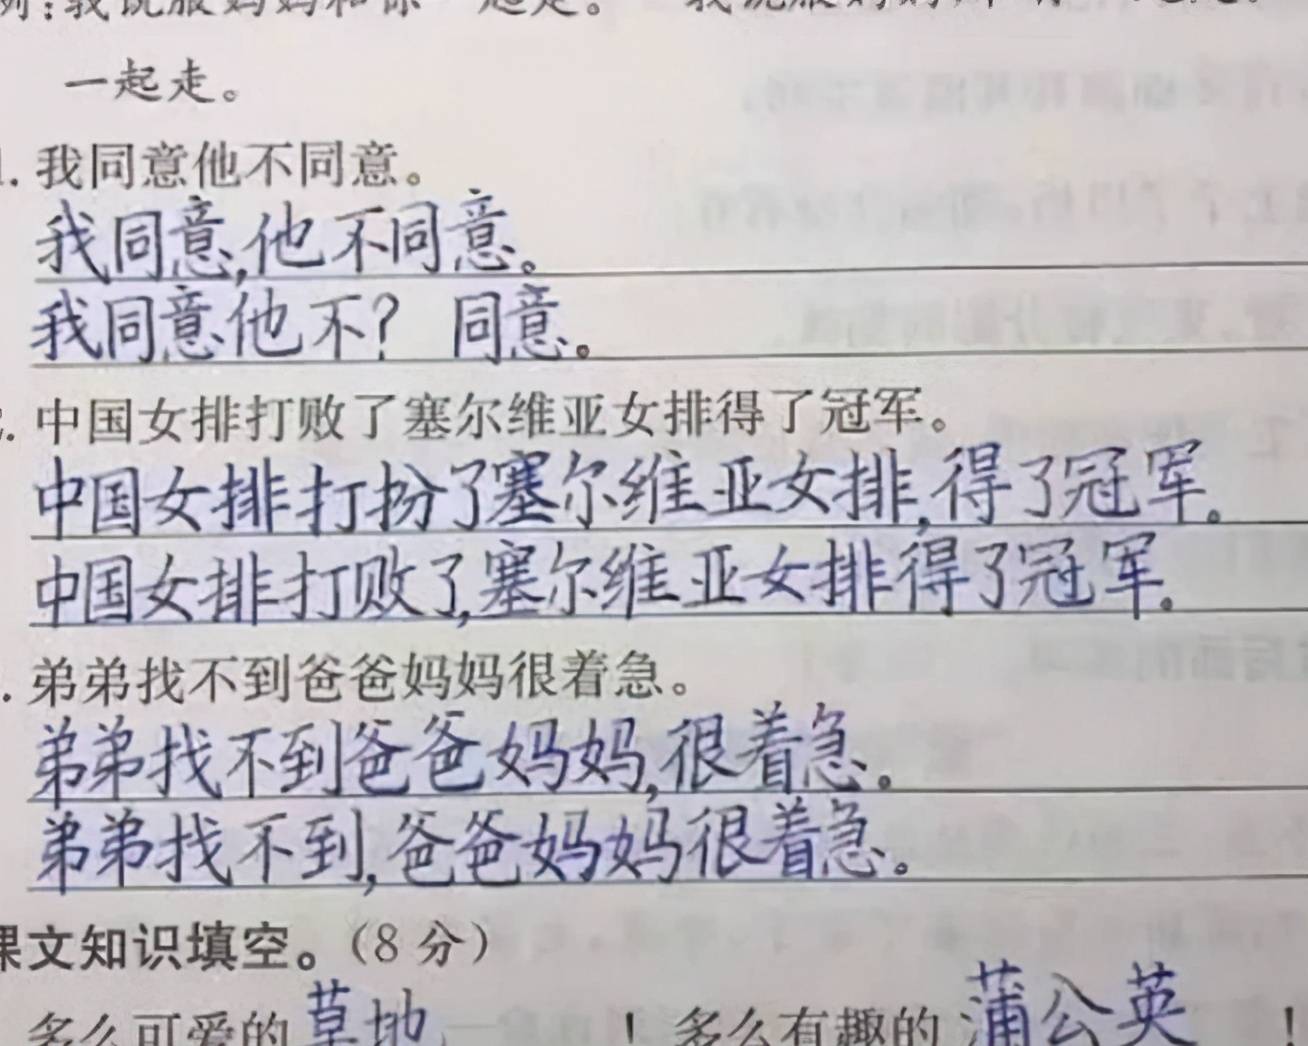 例:我说服妈妈和你一起走。 我说服妈妈
一起走。
1. 我同意他不同意。
我同意,他不同意。
我同意他不? 同意。
2. 中国女排打败了塞尔维亚女排得了冠军。
中国女排打扮了塞尔维亚女排,得了冠军。
中国女排打败了,塞尔维亚女排得了冠军。
. 弟弟找不到爸爸妈妈很着急。
弟弟找不到爸爸妈妈,很着急。
弟弟找不到,爸爸妈妈很着急。
课文知识填空。(8分)
多么可爱的 草地 ! 多么有趣的 蒲公英 !